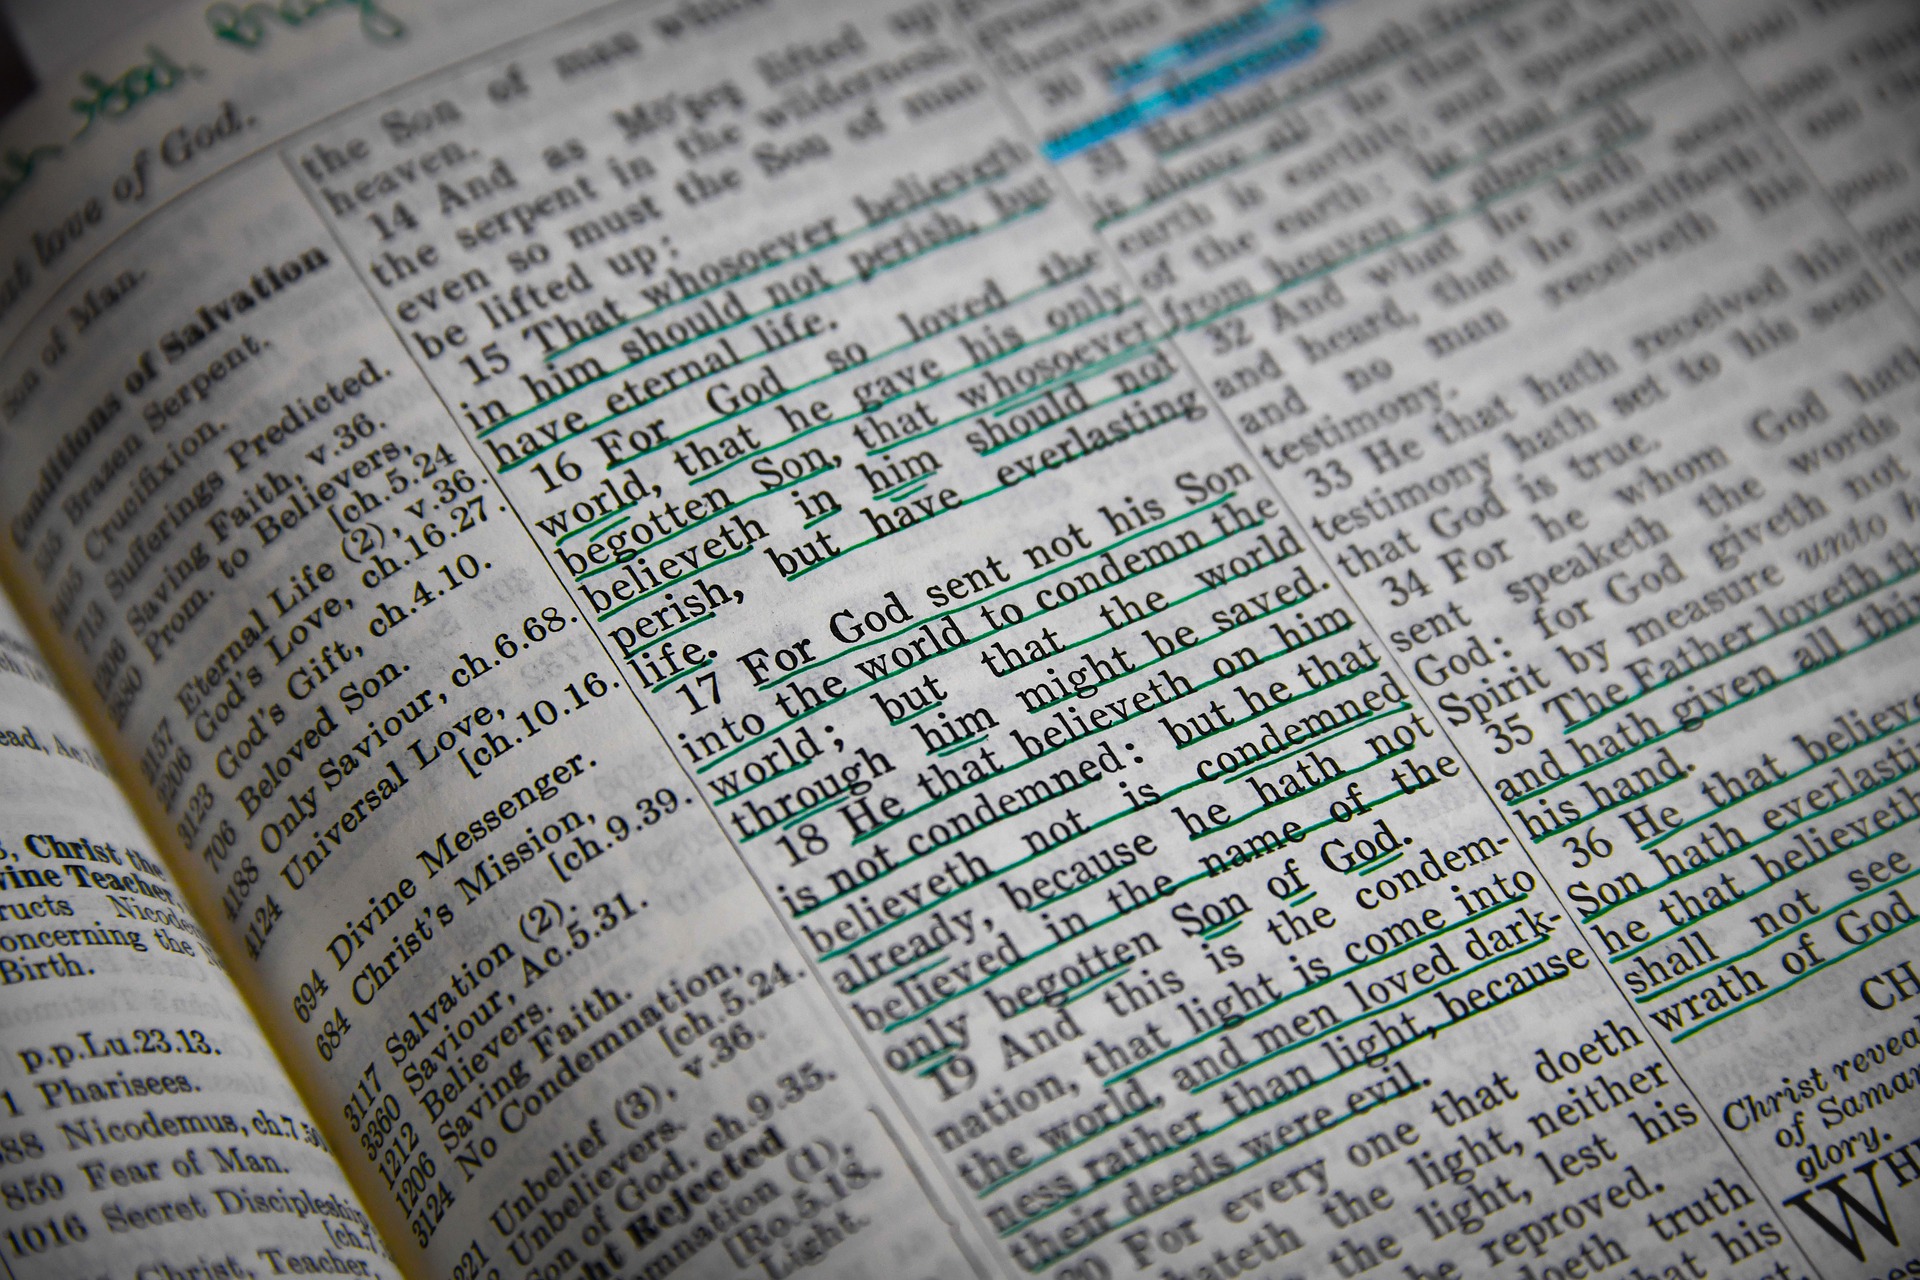 God. Pray
love of God.
Son of Man.
Conditions of Salvation
Brazen Serpent.
Crucifixion.
Sufferings Predicted.
Saving Faith, v.36.
Prom. to Believers,
[ch.5.24
2157 Eternal Life (2), v.36.
2206 God's Love, ch.16.27.
3123 God's Gift, ch.4.10.
706 Beloved Son.
4188 Only Saviour, ch.6.68.
4124 Universal Love,
[ch.10.16.
694 Divine Messenger.
684 Christ's Mission,
[ch.9.39.
3117 Salvation (2).
3360 Saviour, Ac.5.31.
1212 Believers.
1206 Saving Faith.
3124 No Condemnation,
[ch.5.24.
Unbelief (3), v.36.
Unbelievers.
Son of God, ch.9.35.
Rejected
(1),
[Ro.5.18.
Light.
Christ the
vine Teacher,
ructs
oncerning the
Birth.
p.p.Lu.23.13.
1 Pharisees.
88 Nicodemus, ch.7.50
859 Fear of Man.
1016 Secret Discipleship,
[ch.
Christ, Teacher,
the Son of man
heaven.
14 And as Mo'ses lifted up
the serpent in the wilderness,
even so must the Son of man
be lifted up:
15 That whosoever believeth
in him should not perish, but
have eternal life.
16 For God so loved the
world, that he gave his only
begotten Son, that whosoever
believeth in him should not
perish, but have everlasting
life.
17 For God sent not his Son
into the world to condemn the
world; but that the world
through him might be saved.
18 He that believeth on him
is not condemned: but he that
believeth not is condemned
already, because he hath not
believed in the name of the
only begotten Son of God.
19 And this is the condem-
nation, that light is come into
the world, and men loved dark-
ness rather than light, because
their deeds were evil.
20 For every one that doeth
hateth the light, neither
the light, lest his
be reproved.
doeth truth
that his
30
31 He that cometh
is above all: he that is of the
earth is earthly, and speaketh
of the earth: he that cometh
from heaven is above all.
32 And what he hath seen
and heard, that he testifieth;
and no man receiveth his
testimony.
33 He that hath received his
testimony hath set to his seal
that God is true.
34 For he whom God hath
sent speaketh the words
God: for God giveth not
Spirit by measure unto
35 The Father loveth the
and hath given all thi
his hand.
36 He that believe
Son hath everlasti
he that believeth
shall not see
wrath of God
CH
Christ revea
of Samar
glory.
WH